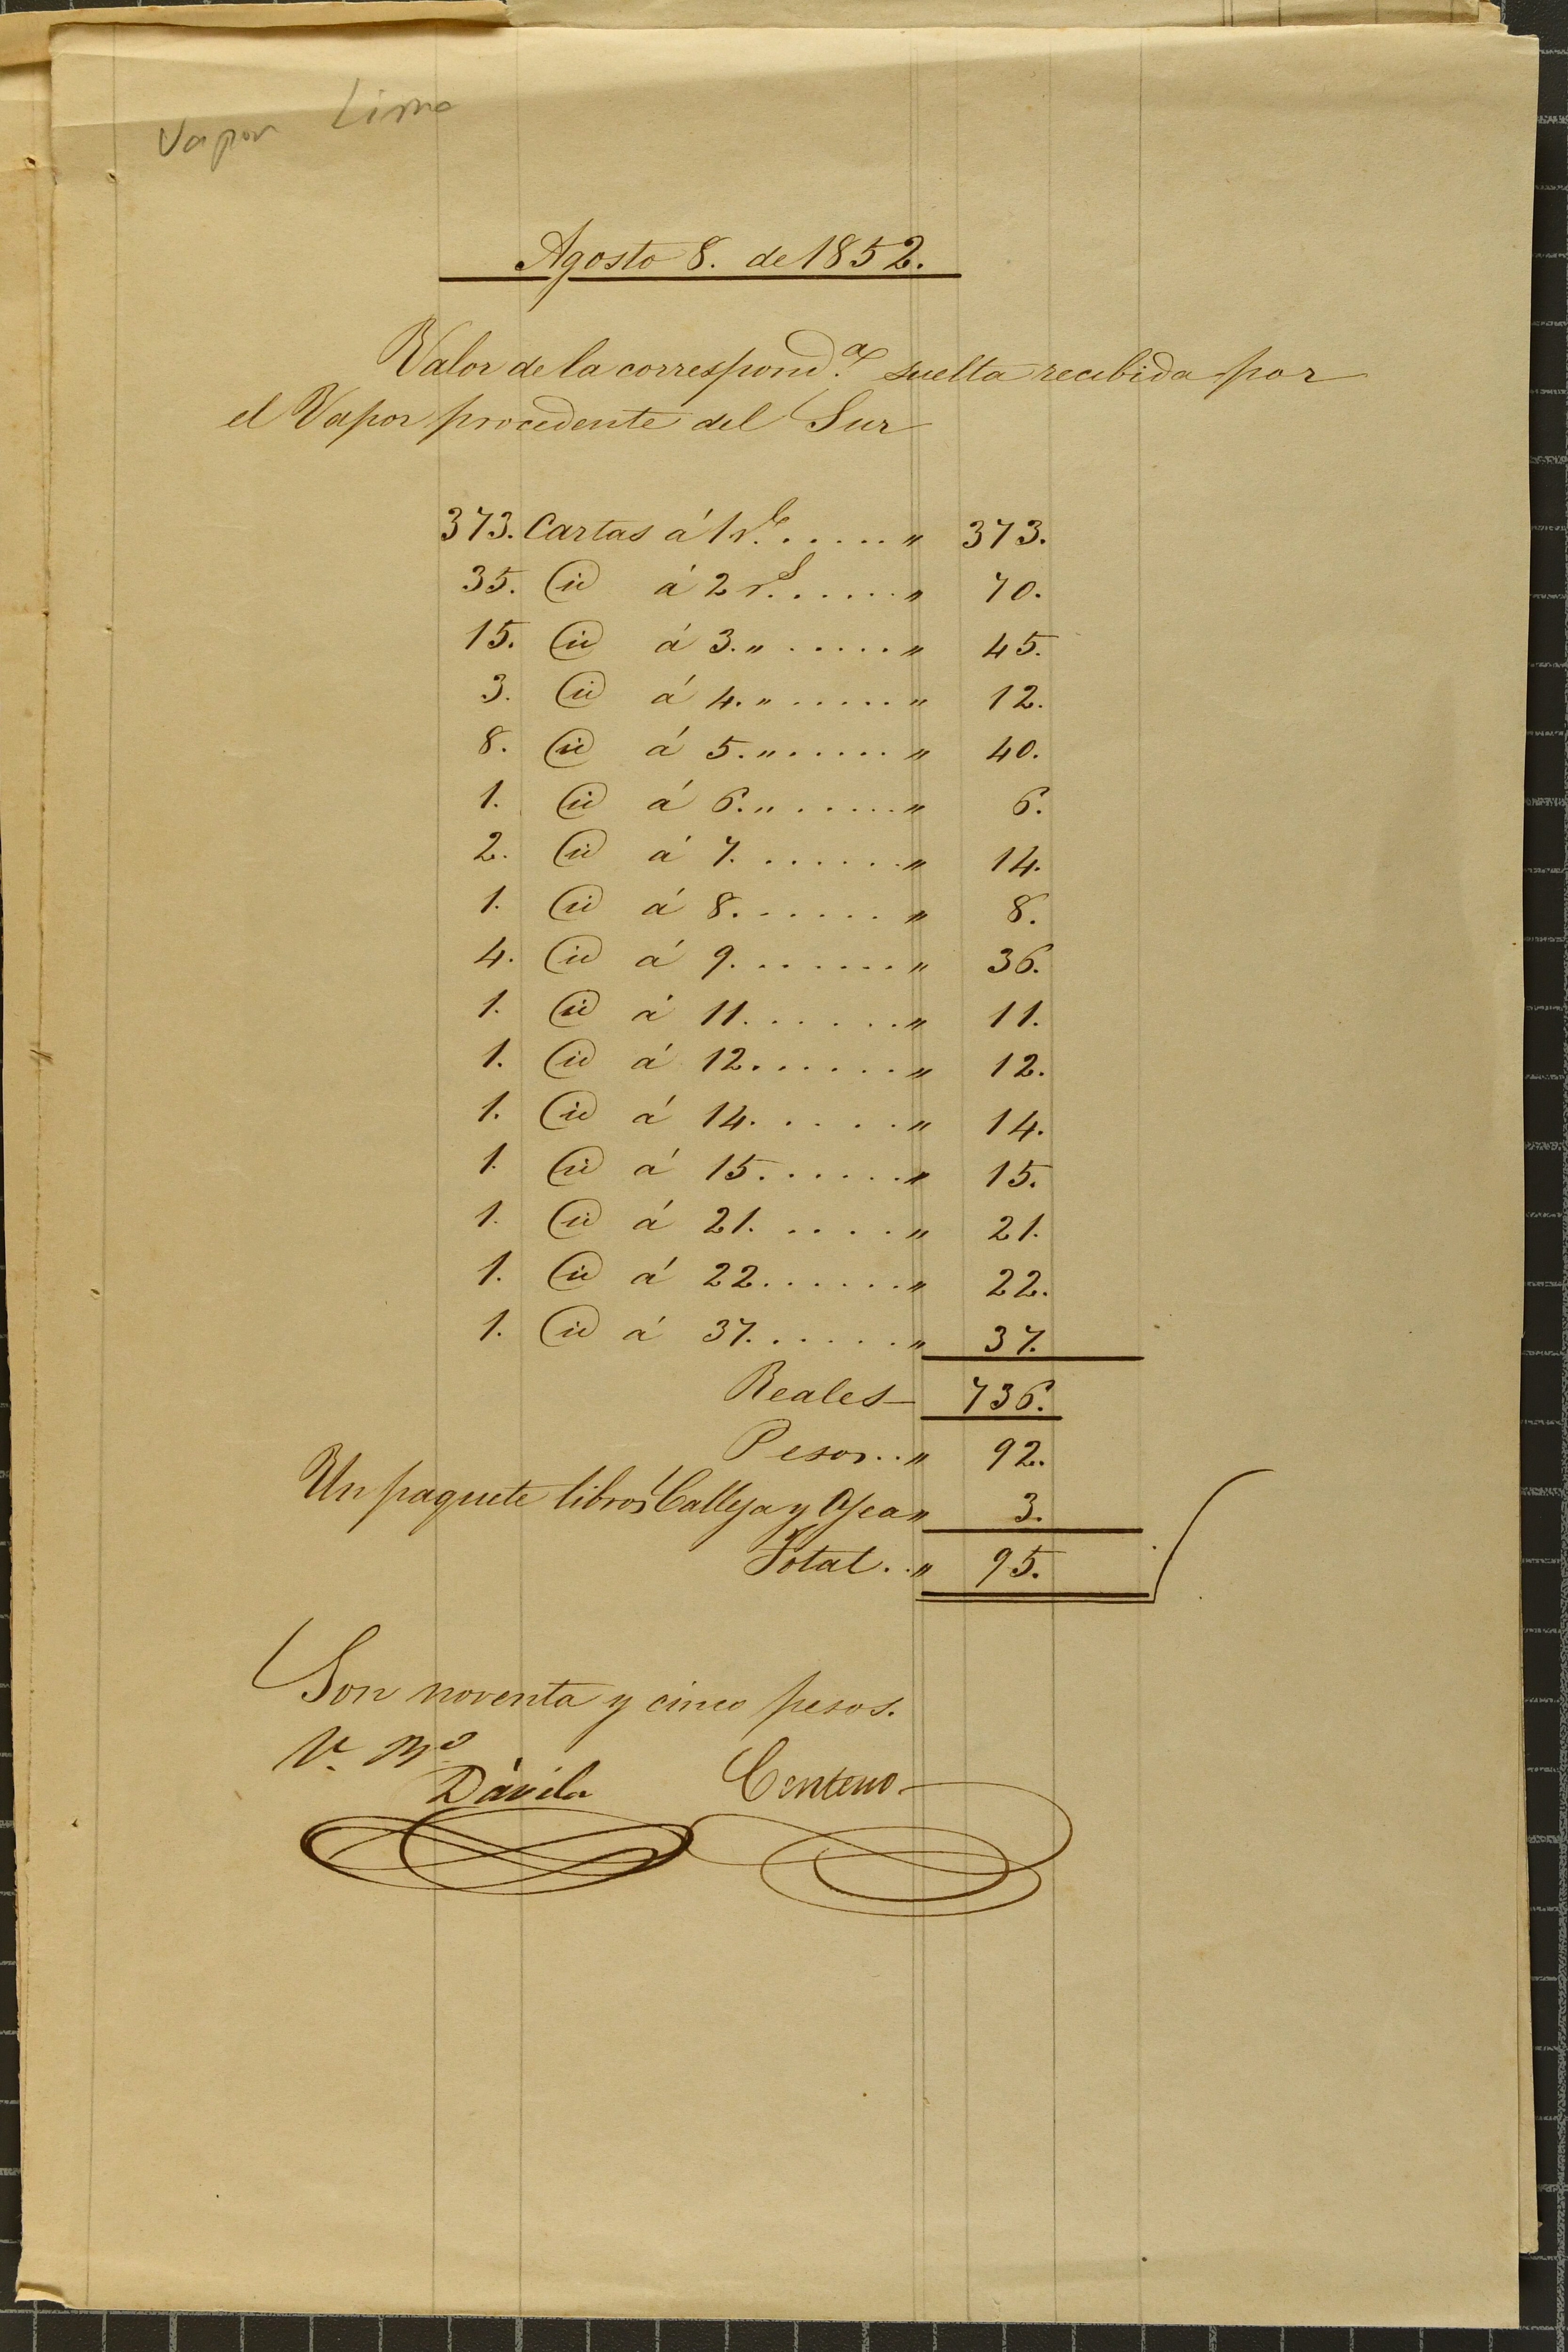 Vapor Lima
Agosto 8. de 1852.
Valor de la correspond.ª suelta recibida por
el Vapor procedente del Sur
373. Cartas á 1 rl. . . . . . " 373.
35. id á 2 rs. . . . . . " 70.
15. id á 3. " . . . . . " 45.
3. id á 4. " . . . . . " 12.
8. id á 5. " . . . . . " 40.
1. id á 6. " . . . . . " 6.
2. id á 7. . . . . . . " 14.
1. id á 8. . . . . . . " 8.
4. id á 9. . . . . . . " 36.
1. id á 11. . . . . . " 11.
1. id á 12. . . . . . " 12.
1. id á 14. . . . . " 14.
1. id á 15. . . . . . " 15.
1. id á 21. . . . . " 21.
1. id á 22. . . . . . " 22.
1. id á 37. . . . . . " 37.
Reales 736.
Pesos. . " 92.
Un paquete libros Calleja y " 3.
Total. . " 95.
Son noventa y cinco pesos.
V. B.º
Dávila Centeno